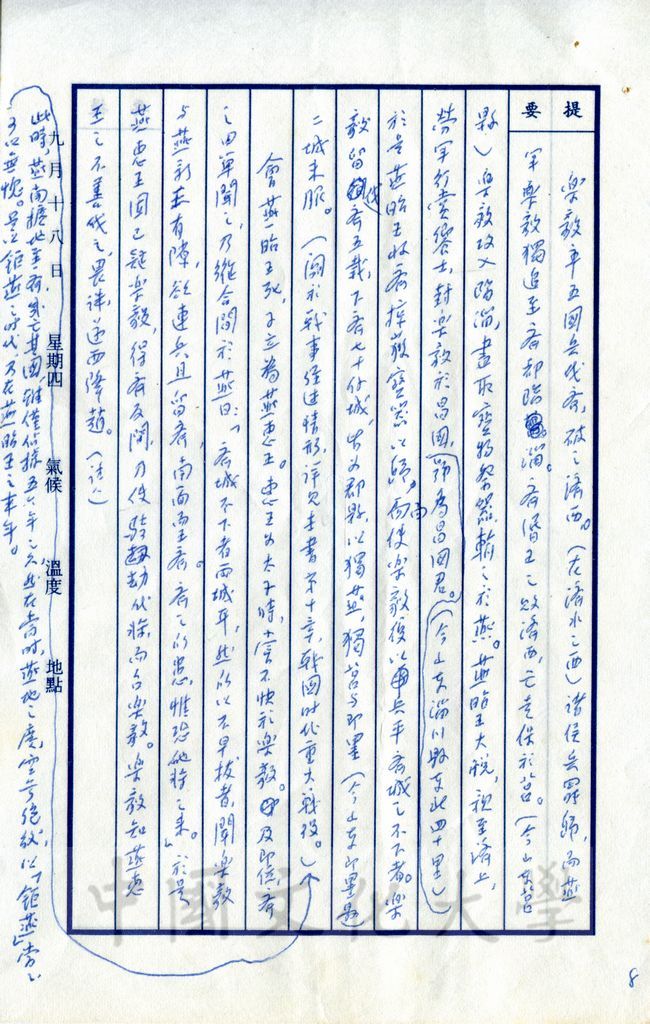 提要
樂毅率五國兵伐齊，破之濟西。（在濟水之西）諸侯兵罷歸，而燕
軍樂毅獨追至齊都臨淄。齊湣王之敗濟西，亡走保於莒。（今山東莒
縣）樂毅攻入臨淄，盡取寶物祭器輸之於燕。燕昭王大悅，親至濟上，
勞軍行賞饗士，封樂毅於昌國，號為昌國君。（今山東淄川縣東北四十里）
於是燕昭王收齊擄獲寶器以歸，而使樂毅復以兵平齊城之不下者。樂
毅留伐齊五載，下齊七十餘城，皆為郡縣，以獨燕，獨莒與即墨（今山東即墨縣）
二城未服。（關於戰事經過情形，詳見本書第十章，戰國時代重大戰役。）
會燕昭王死，子立為燕惠王。惠王為太子時，嘗不快於樂毅。及即位，齊
之田單聞之，乃縱合間於燕曰：「齊城不下者兩城耳，然所以不早拔者，聞樂毅
與燕新王有隙，欲連兵且留齊，南面而王齊。齊之所患，惟恐他將之來。」於是
燕惠王固已疑樂毅，得齊反間，乃使騎劫代將而召樂毅。樂毅知燕惠
王之不善代之，畏誅，遂西降趙。（註八）
九月十八日 星期四 氣候 溫度 地點
此時，燕南疆地至齊，幾亡其國，雖僅佔據五六年之久，然在當時，燕地之廣，空前絕後，以「鉅燕」當之
可以無愧。是江鉅燕之時代，乃在燕昭王之末年。
8
中國文化大學